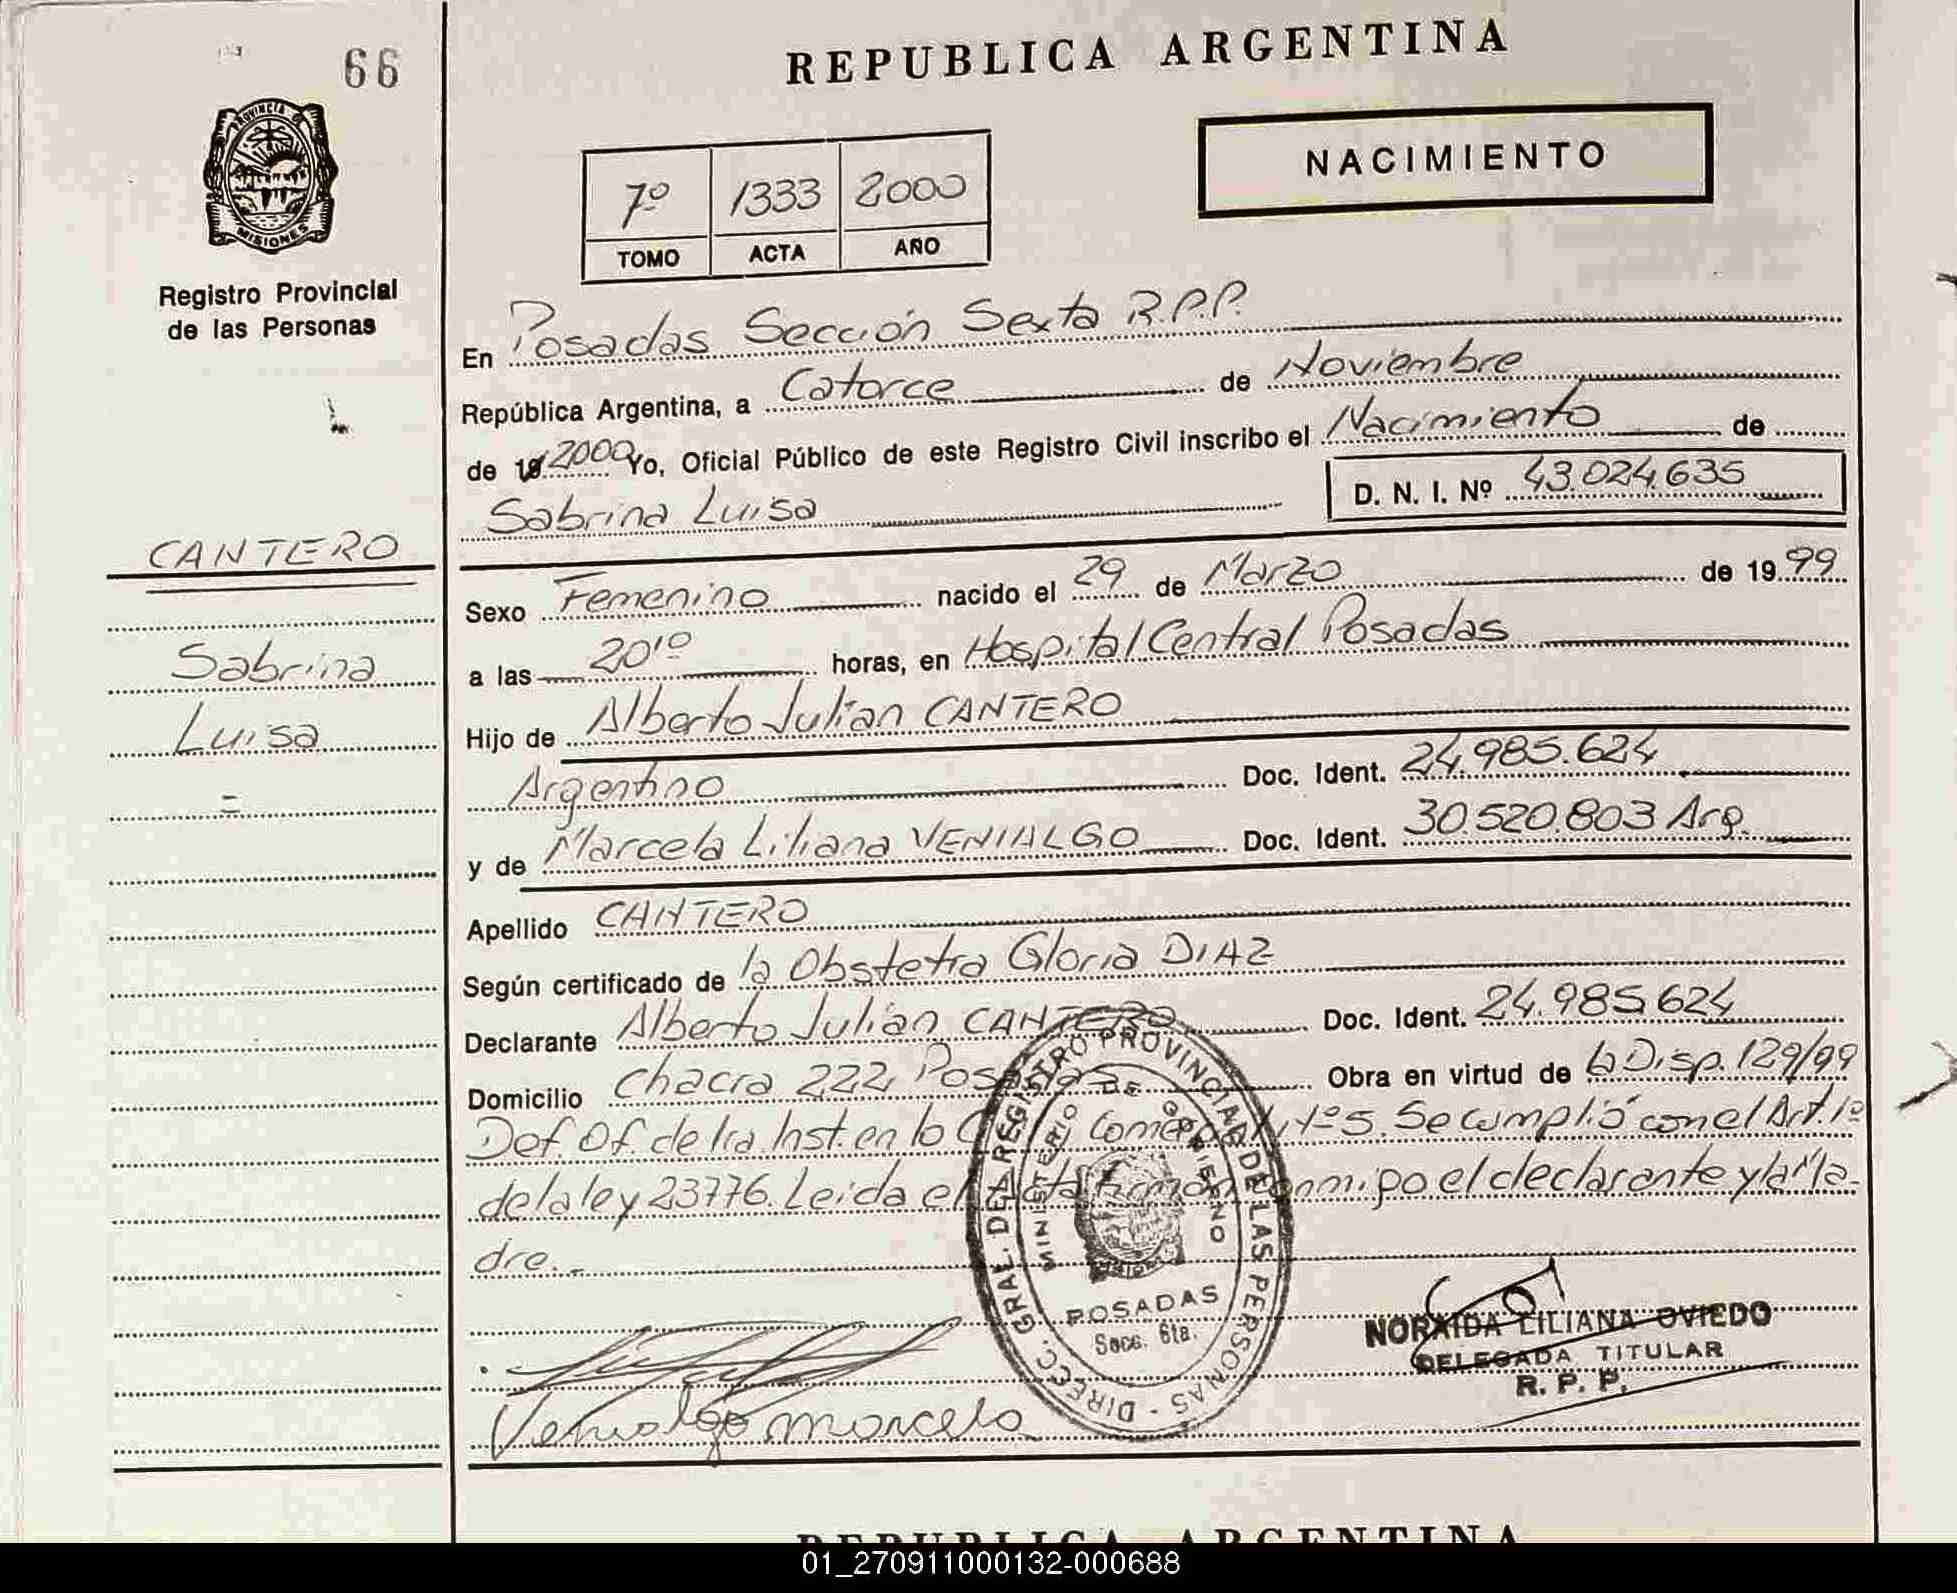 66
REPUBLICA ARGENTINA
PROVINCIA DE
MISIONES
Registro Provincial
de las Personas
NACIMIENTO
7º 1333 2000
TOMO ACTA AÑO
En Posadas Sección Sexta R.P.P.
República Argentina, a Catorce de Noviembre
de 19 2000 Yo, Oficial Público de este Registro Civil inscribo el Nacimiento de
Sabrina Luisa D. N. I. Nº 43.024.635
CANTERO
Sabrina
Luisa
Sexo Femenino nacido el 29 de Marzo de 1999
a las 20¹⁰ horas, en Hospital Central Posadas
Hijo de Alberto Julian CANTERO
Argentino Doc. Ident. 24.985.624
y de Marcela Liliana VENIALGO Doc. Ident. 30.520.803 Arg.
Apellido CANTERO
Según certificado de la Obstetra Gloria DIAZ
Declarante Alberto Julian CANTERO Doc. Ident. 24.985624
Domicilio Chacra 222 Posadas Obra en virtud de la Disp. 129/99
Def. Of. de 1ra. Inst. en lo C y Comercial Nº 5. Se cumplió con el Art. 1º
de la ley 23776. Leida el acta firman conmigo el declarante y la Ma-
dre.-
DIRECC. GRAL. DEL REGISTRO PROVINCIAL DE LAS PERSONAS -
MINISTERIO DE GOBIERNO
POSADAS
Secc. 6ta.
NORAIDA LILIANA OVIEDO
DELEGADA TITULAR
R. P. P.
Venialgo Marcela
REPUBLICA ARGENTINA
01_270911000132-000688